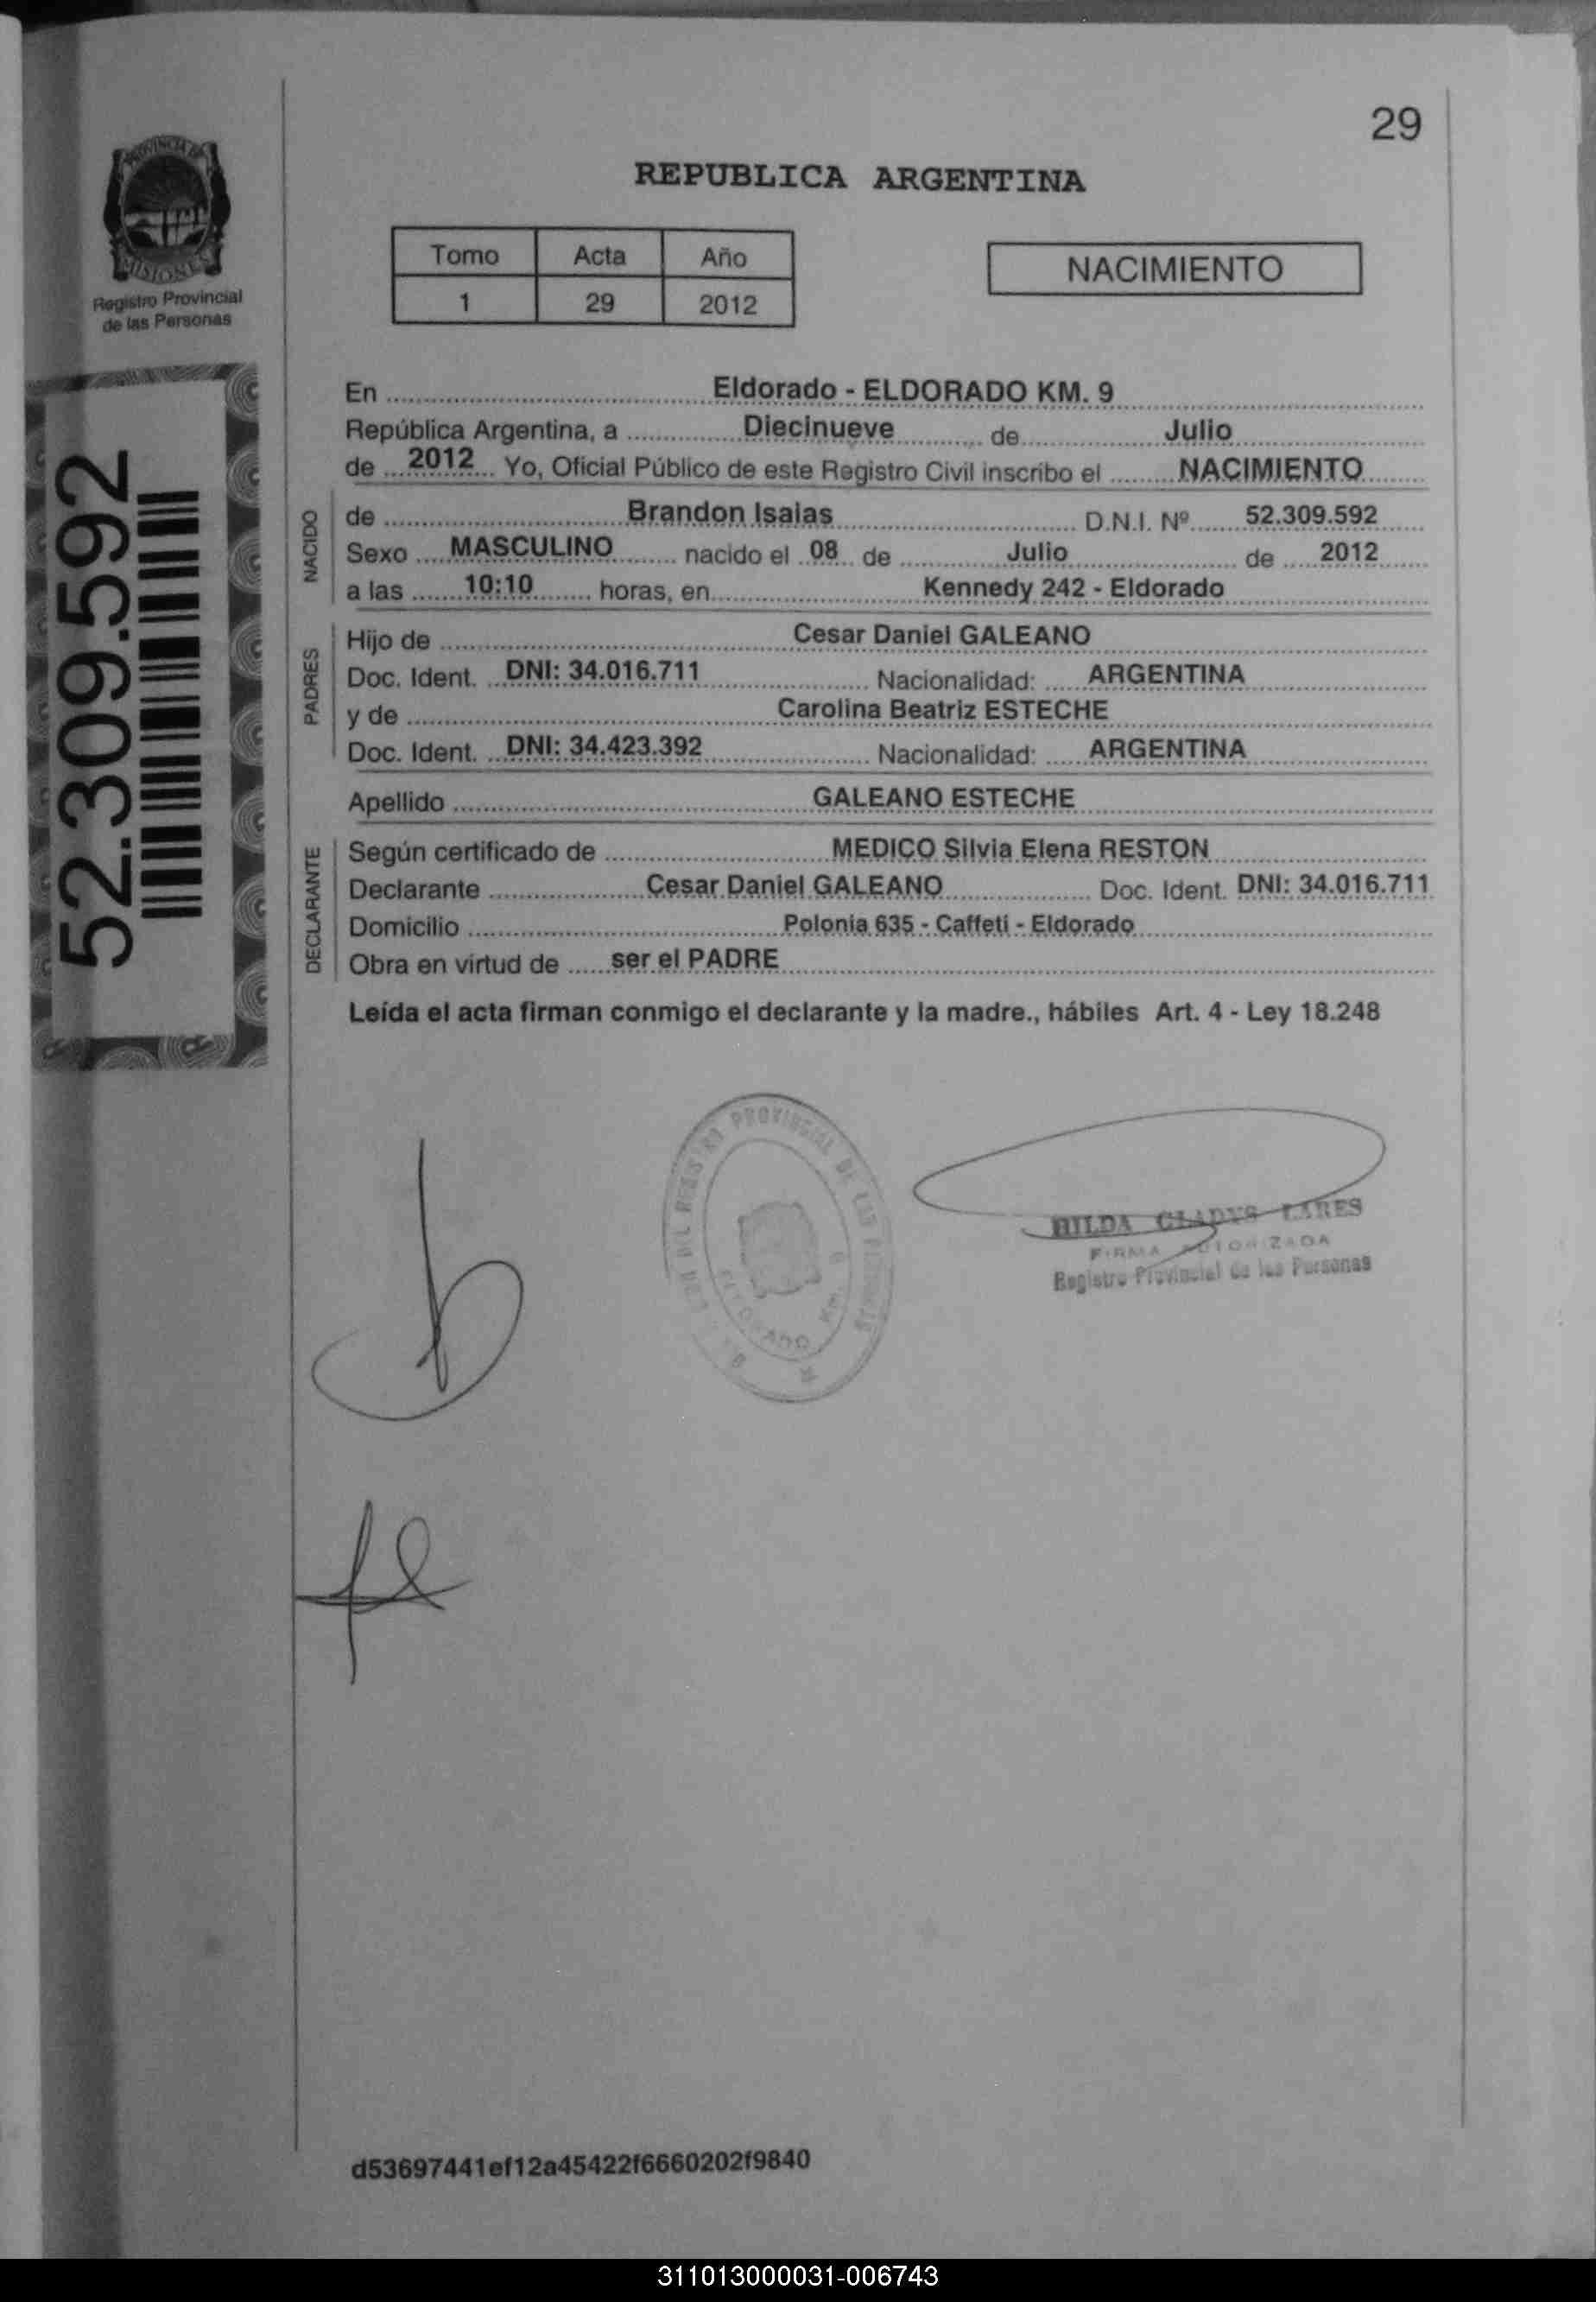 29
PROVINCIA DE
MISIONES
Registro Provincial
de las Personas
REPUBLICA ARGENTINA
Tomo Acta Año
1 29 2012
NACIMIENTO
52.309.592
En Eldorado - ELDORADO KM. 9
República Argentina, a Diecinueve de Julio
de 2012 Yo, Oficial Público de este Registro Civil inscribo el NACIMIENTO
NACIDO
de Brandon Isaias D.N.I. Nº 52.309.592
Sexo MASCULINO nacido el 08 de Julio de 2012
a las 10:10 horas, en Kennedy 242 - Eldorado
PADRES
Hijo de Cesar Daniel GALEANO
Doc. Ident. DNI: 34.016.711 Nacionalidad: ARGENTINA
y de Carolina Beatriz ESTECHE
Doc. Ident. DNI: 34.423.392 Nacionalidad: ARGENTINA
Apellido GALEANO ESTECHE
DECLARANTE
Según certificado de MEDICO Silvia Elena RESTON
Declarante Cesar Daniel GALEANO Doc. Ident. DNI: 34.016.711
Domicilio Polonia 635 - Caffeti - Eldorado
Obra en virtud de ser el PADRE
Leída el acta firman conmigo el declarante y la madre., hábiles Art. 4 - Ley 18.248
PROVINCIAL DE LAS PERSONAS
ELDORADO KM.
HILDA GLADYS LARES
FIRMA AUTORIZADA
Registro Provincial de las Personas
d53697441ef12a45422f6660202f9840
311013000031-006743